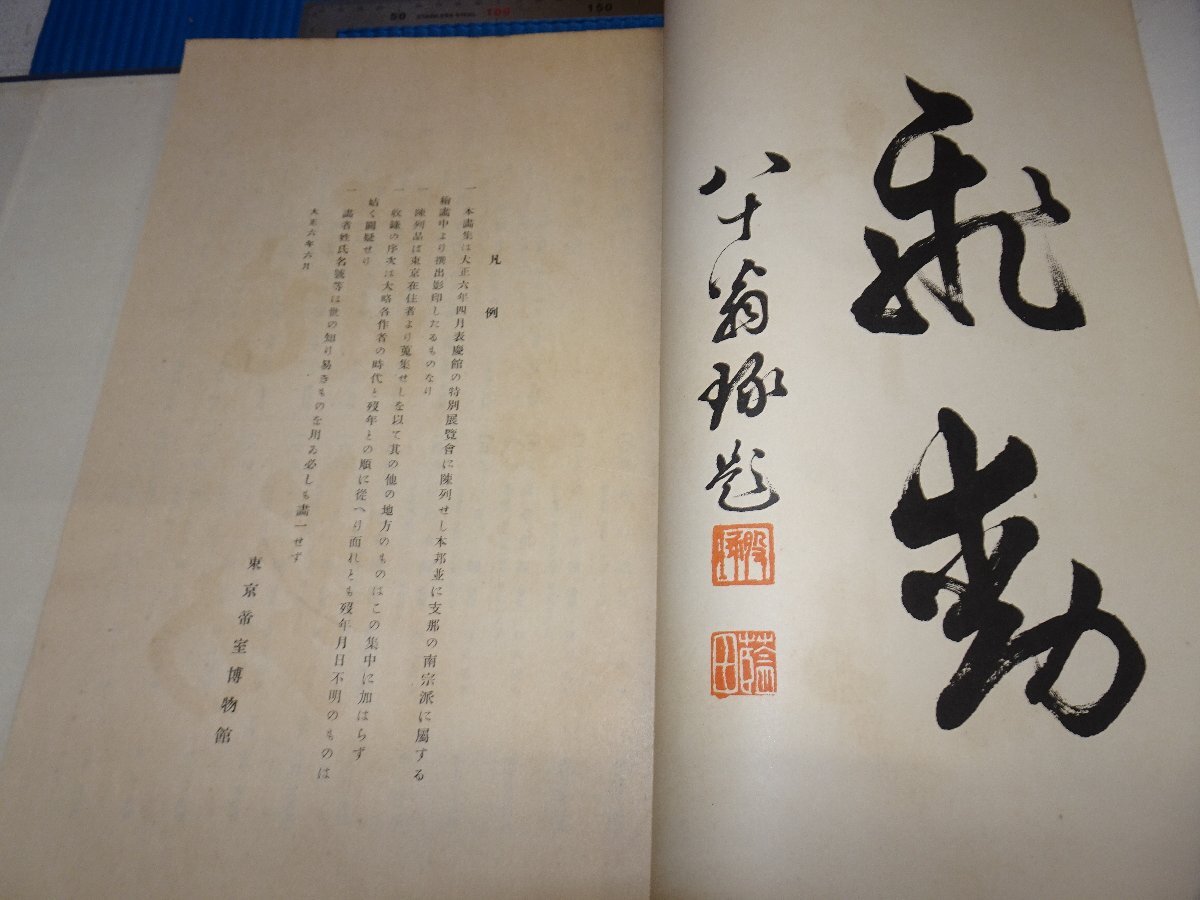 50 STAINLESS STEEL 100 150
飛動
八十翁琢題
藍田
凡例
一 本畫集は大正六年四月表慶館の特別展覽會に陳列せし本邦並に支那の南宗派に屬する
繪畫中より撰出影印したるものなり
一 陳列品は東京在住者より蒐集せしを以て其の他の地方のものはこの集中に加はらず
一 收錄の序次は大略各作者の時代と歿年との順に從へり而れとも歿年月日不明のものは
姑く闕疑せり
一 畫者姓氏名號等は世の知り易きものを用ゐ必しも畫一せず
大正六年六月
東京帝室博物館